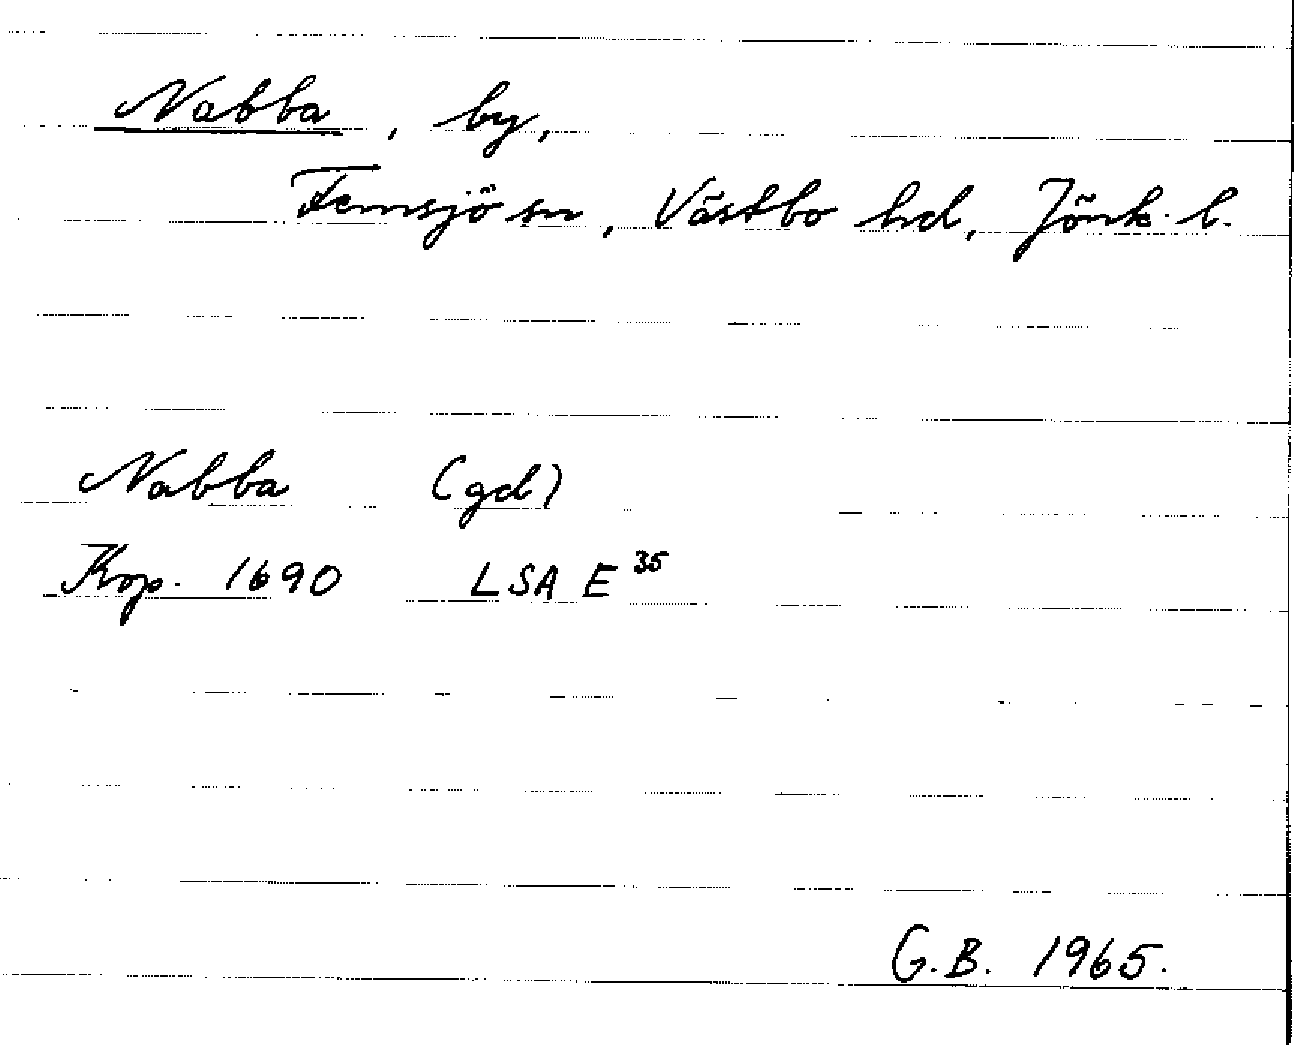 Nabba, by,
Femsjö sn, Västbo hd, Jönk. l.
Nabba (gd)
Kop. 1690 LSA E 35
G.B. 1965.